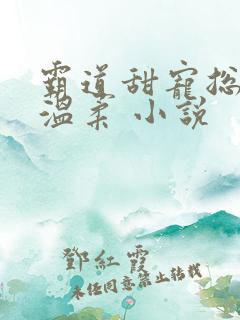 霸道甜寵总
溫柔 小説
鄧紅霞
未经同意禁止转载